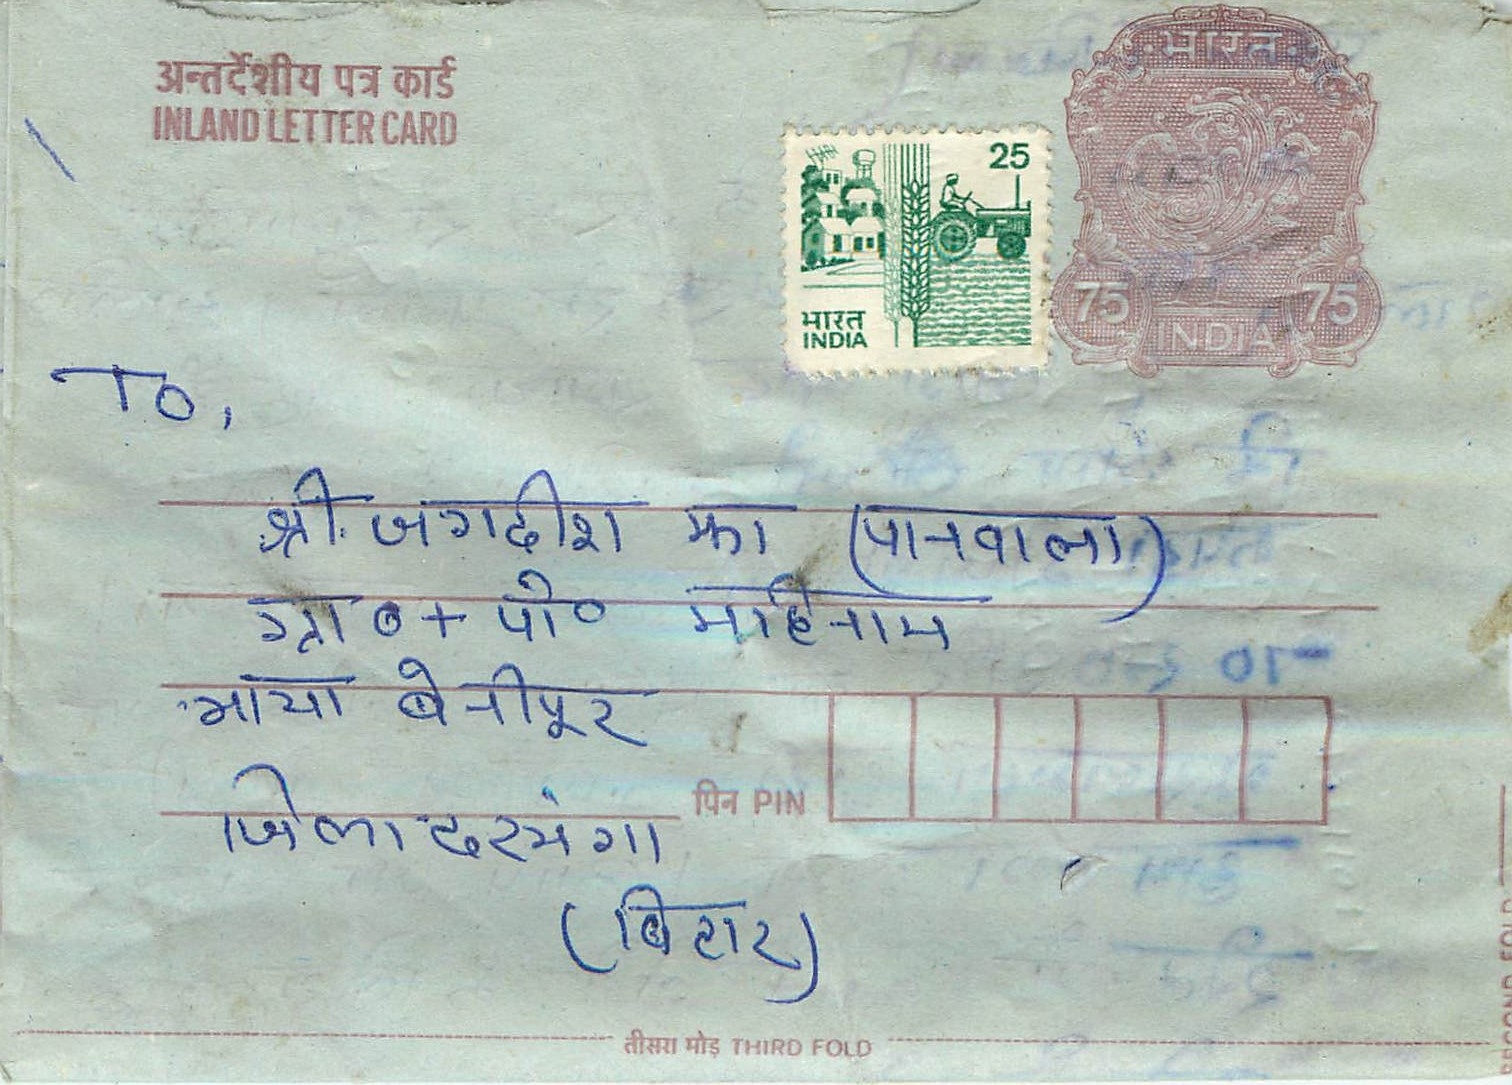 अन्तर्देशीय पत्र कार्ड
INLAND LETTER CARD
भारत
25
भारत
INDIA
75 INDIA 75
To,
श्री जगदीश झा (पानवाला)
ग्रा० + पो० महिनाम
भाया बेनीपूर
पिन PIN
जिला दरभंगा
(बिहार)
तीसरा मोड़ THIRD FOLD
SECOND FOLD